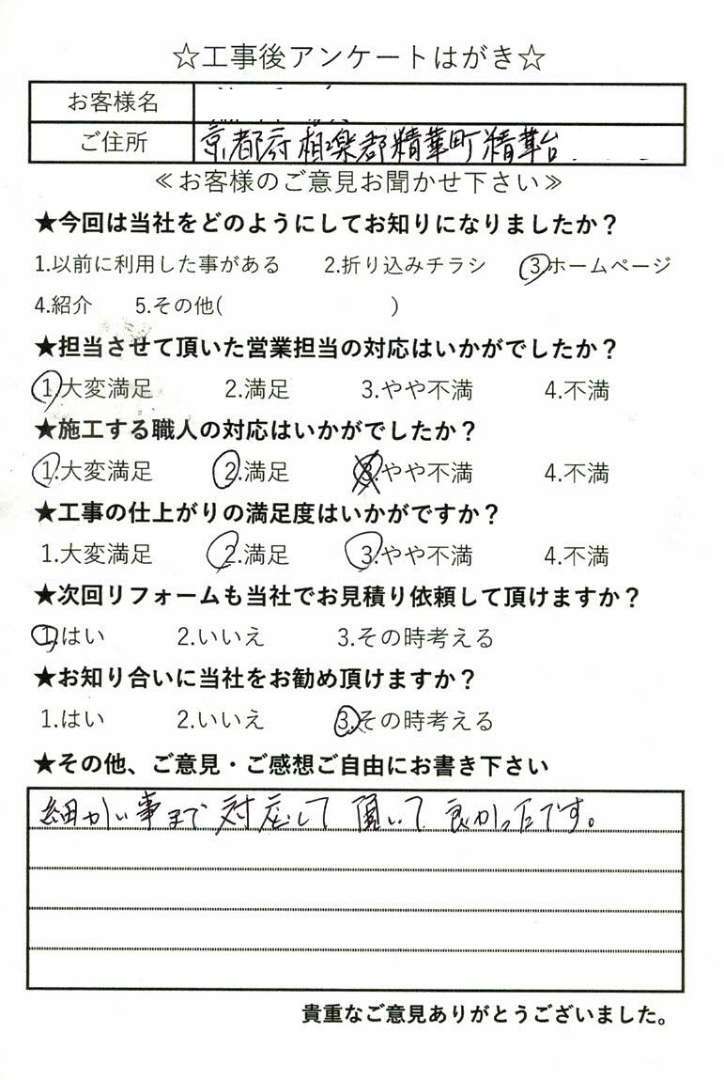 ☆工事後アンケートはがき☆
お客様名
ご住所 京都府相楽郡精華町精華台
≪お客様のご意見お聞かせ下さい≫
★今回は当社をどのようにしてお知りになりましたか？
1.以前に利用した事がある 2.折り込みチラシ 3.ホームページ
4.紹介 5.その他( )
★担当させて頂いた営業担当の対応はいかがでしたか？
1.大変満足 2.満足 3.やや不満 4.不満
★施工する職人の対応はいかがでしたか？
1.大変満足 2.満足 3.やや不満 4.不満
★工事の仕上がりの満足度はいかがですか？
1.大変満足 2.満足 3.やや不満 4.不満
★次回リフォームも当社でお見積り依頼して頂けますか？
1.はい 2.いいえ 3.その時考える
★お知り合いに当社をお勧め頂けますか？
1.はい 2.いいえ 3.その時考える
★その他、ご意見・ご感想ご自由にお書き下さい
細かい事まで対応して頂いて良かったです。
貴重なご意見ありがとうございました。